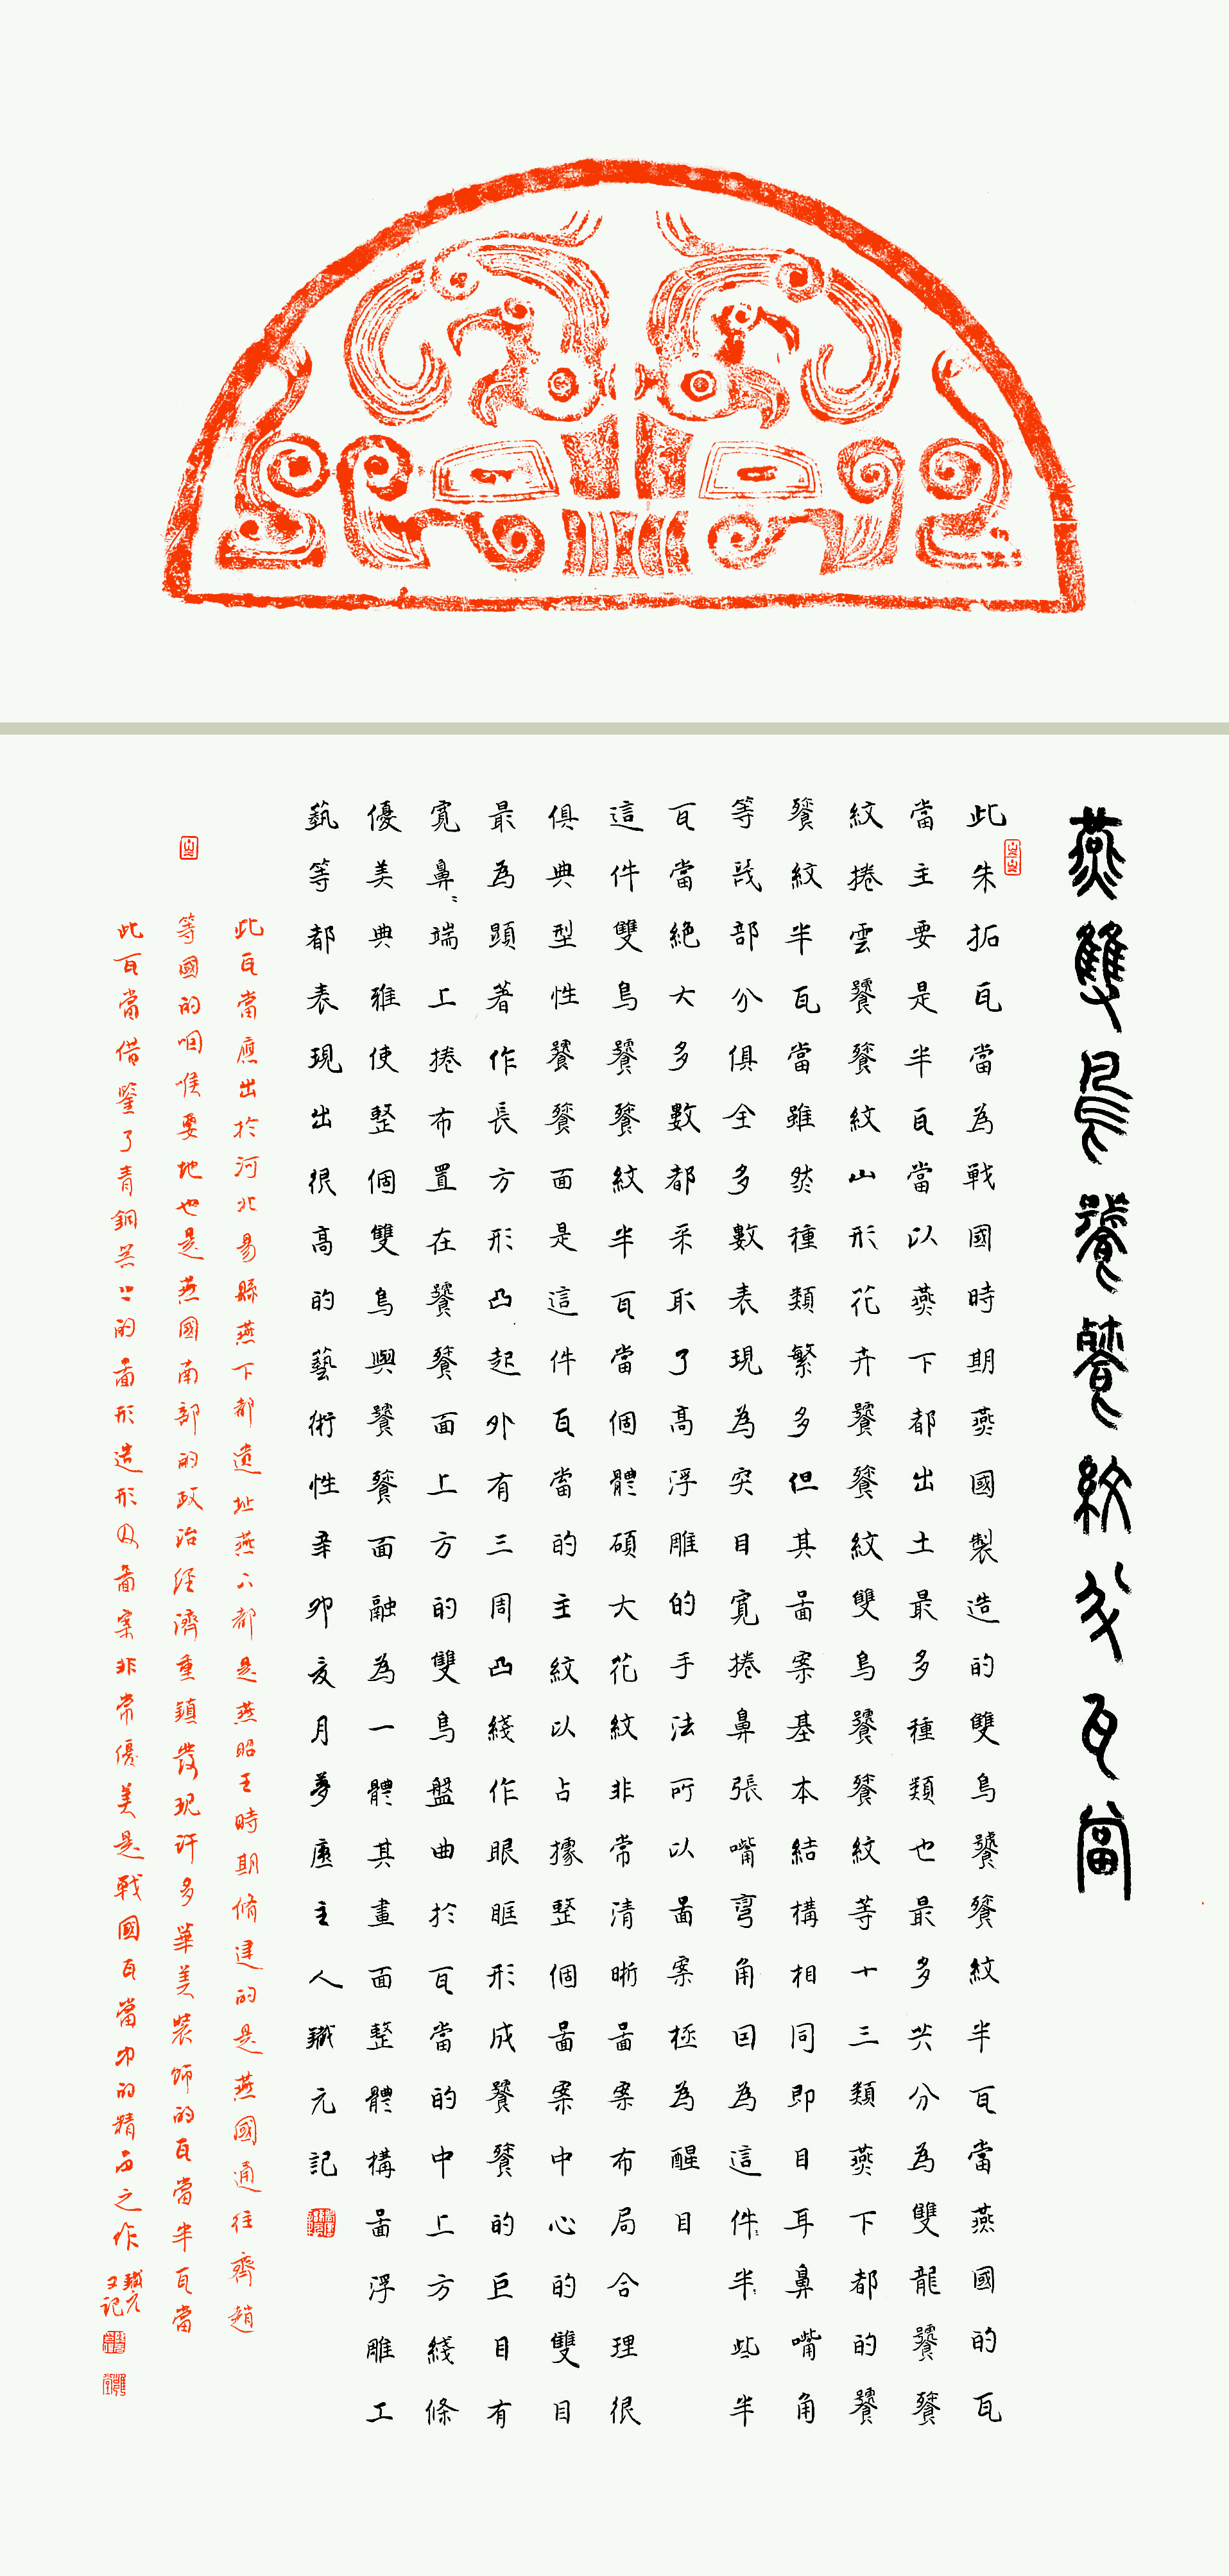 燕雙鳥饕餮紋半瓦當
此朱拓瓦當為戰國時期燕國製造的雙鳥饕餮紋半瓦當燕國的瓦
當主要是半瓦當以燕下都出土最多種類也最多共分為雙龍饕餮
紋捲雲饕餮紋山形花卉饕餮紋雙鳥饕餮紋等十三類燕下都的饕
餮紋半瓦當雖然種類繁多但其圖案基本結構相同即目耳鼻嘴角
等幾部分俱全多數表現為突目寬捲鼻張嘴彎角因為這件半些半
瓦當絕大多數都采取了高浮雕的手法所以圖案極為醒目
這件雙鳥饕餮紋半瓦當個體碩大花紋非常清晰圖案布局合理很
俱典型性饕餮面是這件瓦當的主紋以占據整個圖案中心的雙目
最為顯著作長方形凸起外有三周凸綫作眼眶形成饕餮的巨目有
寬鼻端上捲布置在饕餮面上方的雙鳥盤曲於瓦當的中上方綫條
優美典雅使整個雙鳥與饕餮面融為一體其畫面整體構圖浮雕工
藝等都表現出很高的藝術性辛卯亥月夢廬主人鐵元記
此瓦當應出於河北易縣燕下都遺址燕下都是燕昭王時期脩建的是燕國通往齊趙
等國的咽喉要地也是燕國南部的政治經濟重鎮發現許多華美裝飾的瓦當半瓦當
此瓦當借鑒了青銅器上的圖形造形及圖案非常優美是戰國瓦當中的精品之作
鐵元又記